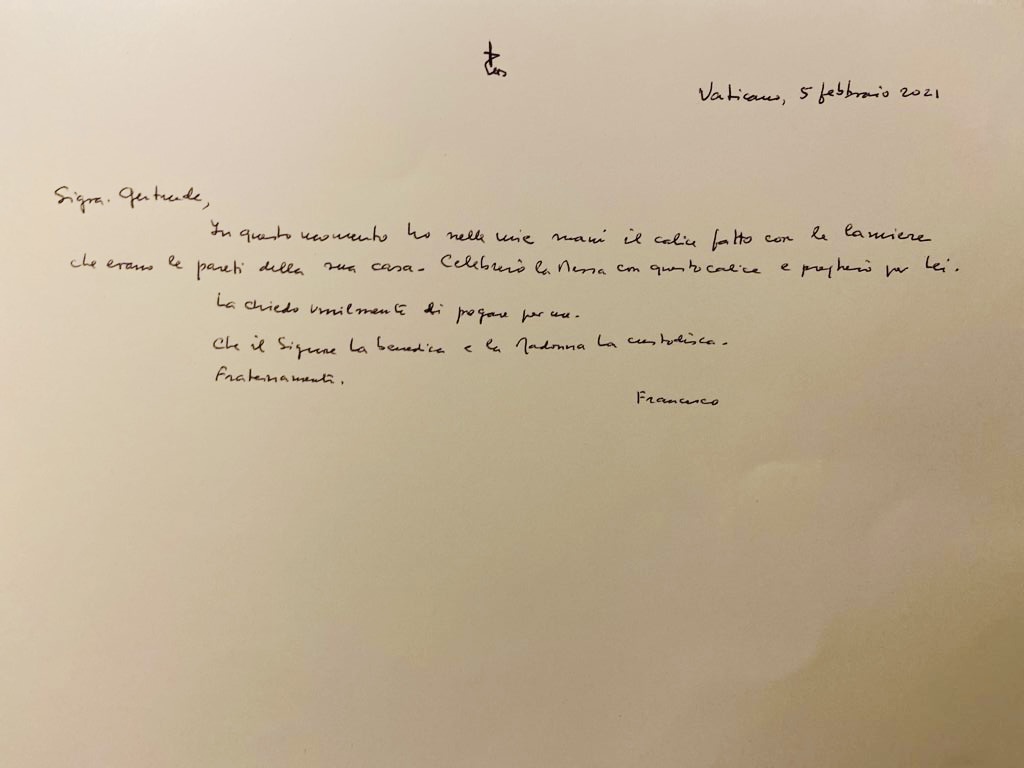 Vaticano, 5 febbraio 2021
Sigra. Gertrude,
In questo momento ho nelle mie mani il calice fatto con le lamiere
che erano le pareti della sua casa. Celebrerò la Messa con questo calice e pregherò per Lei.
La chiedo umilmente di pregare per me.
Che il Signore La benedica e la Madonna La custodisca.
Fraternamente.
Francesco